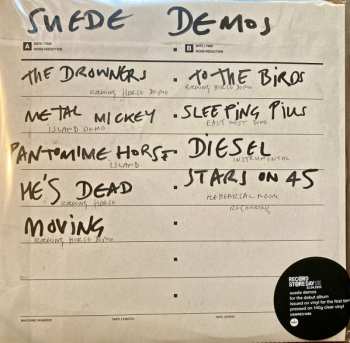 SUEDE DEMOS
A DATE / TIME
NOISE REDUCTION
B DATE / TIME
NOISE REDUCTION
THE DROWNERS
ROCKING HORSE DEMO
METAL MICKEY
ISLAND DEMO
PANTOMIME HORSE
ISLAND
HE'S DEAD
ROCKING HORSE
MOVING
ROCKING HORSE DEMO
TO THE BIRDS
ROCKING HORSE DEMO
SLEEPING PILLS
EAST WEST DEMO
DIESEL
INSTRUMENTAL
STARS ON 45
REHEARSAL ROOM
RECORDING
RECORD
STORE DAY
suede demos
for the debut album
issued on vinyl for the first time
pressed on 140g clear vinyl